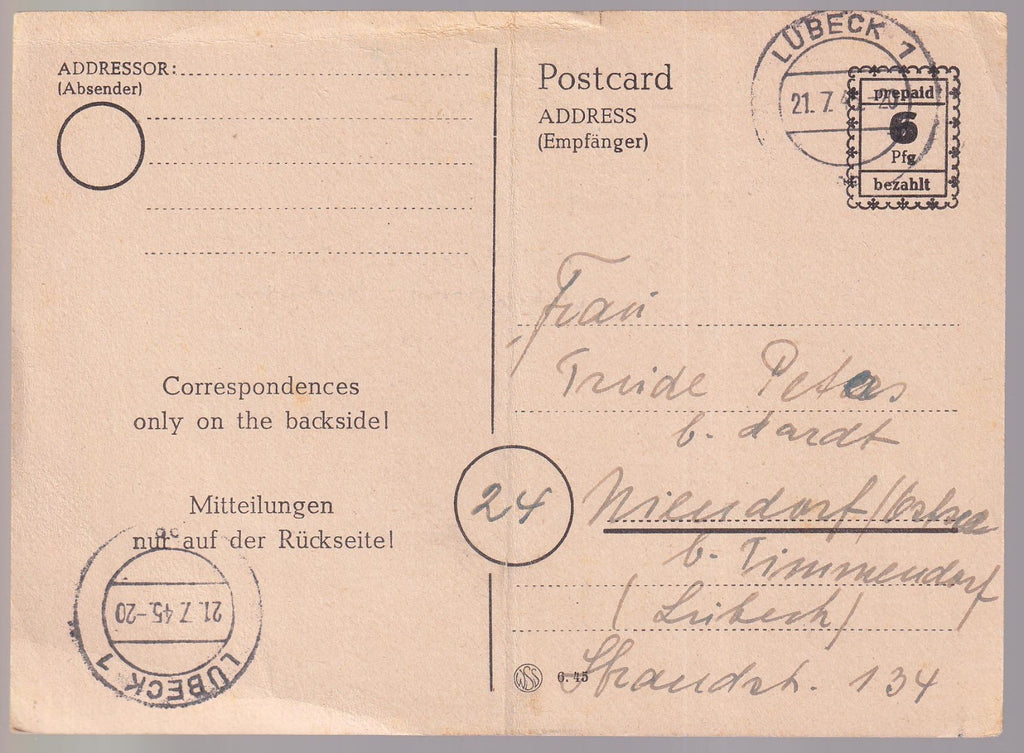 ADDRESSOR:
(Absender)
Correspondences
only on the backside!
Mitteilungen
nur auf der Rückseite!
21. 7. 45.-20
LÜBECK 1
Postcard
ADDRESS
(Empfänger)
LÜBECK 1
21. 7. 45.-20
prepaid
6
Pfg
bezahlt
Frau
Trude Peters
b.
24
Niendorf/Ostsee
b. Timmendorf
(Lübeck)
Strandstr. 134
WSS
6.45